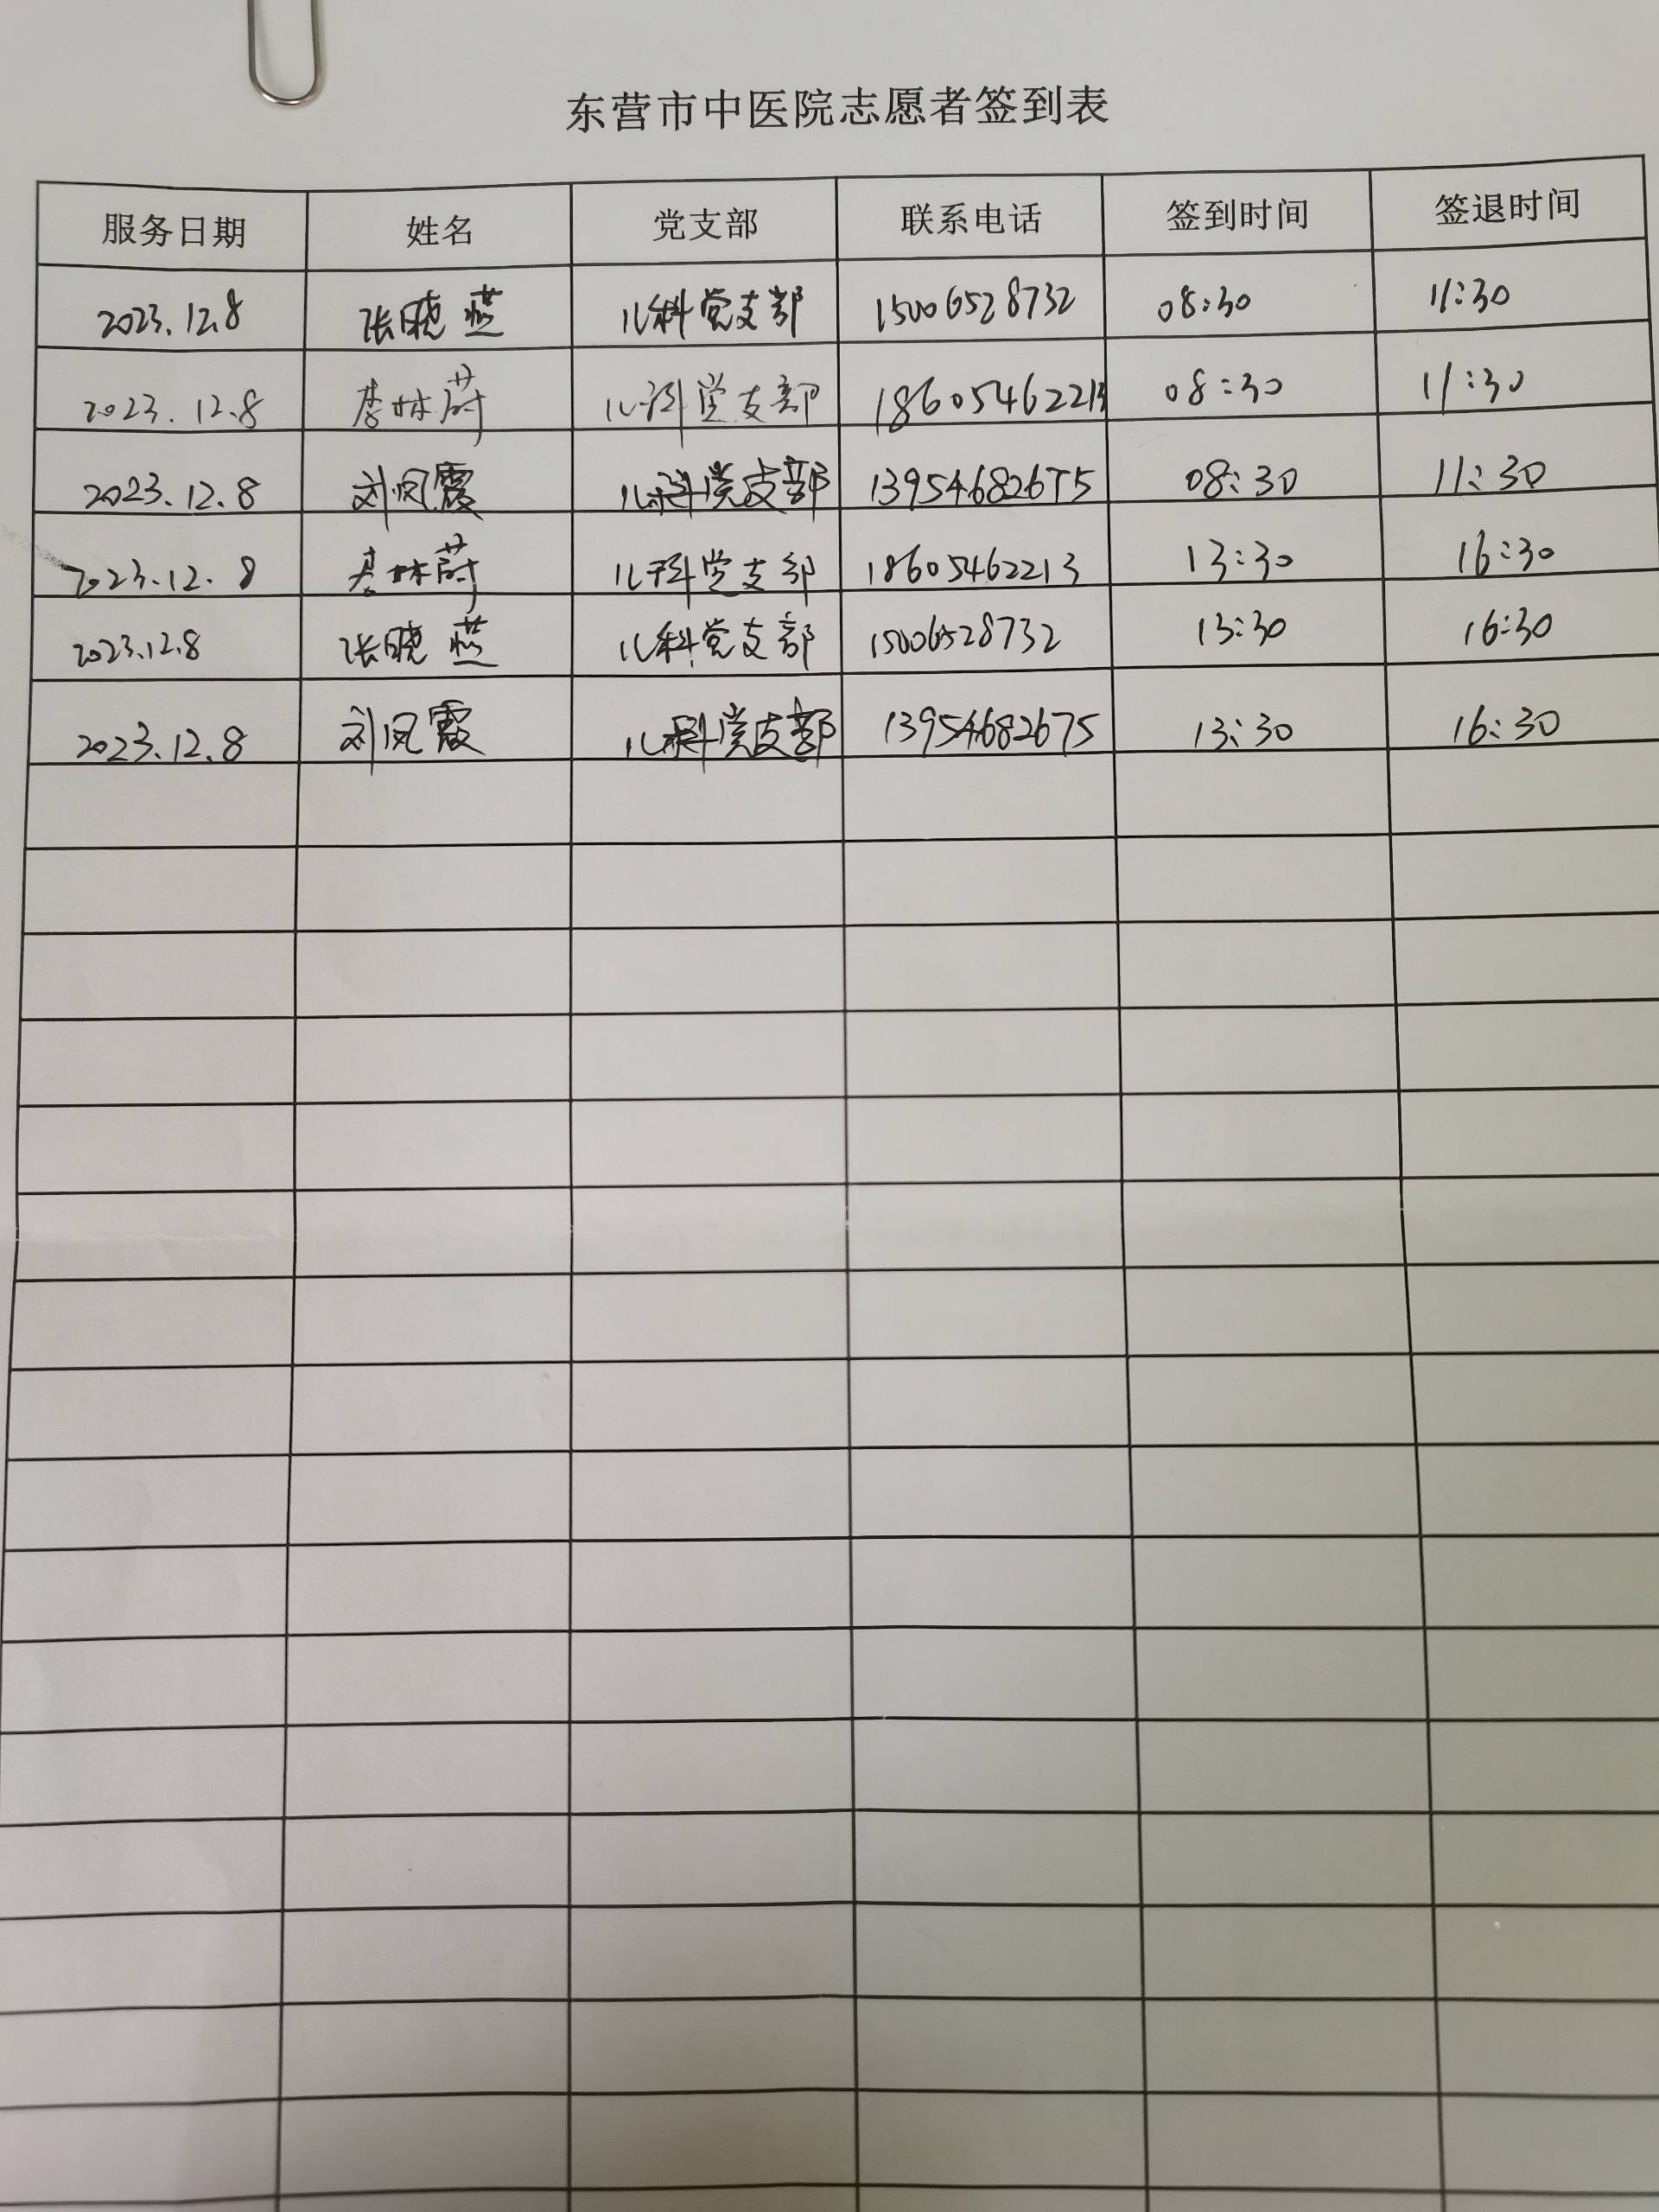 东营市中医院志愿者签到表
服务日期 姓名 党支部 联系电话 签到时间 签退时间
2023.12.8 张晓燕 儿科党支部 15006528732 08:30 11:30
2023.12.8 李林蔚 儿科党支部 18605462213 08:30 11:30
2023.12.8 刘凤霞 儿科党支部 13954682675 08:30 11:30
2023.12.8 李林蔚 儿科党支部 18605462213 13:30 16:30
2023.12.8 张晓燕 儿科党支部 15006528732 13:30 16:30
2023.12.8 刘凤霞 儿科党支部 13954682675 13:30 16:30